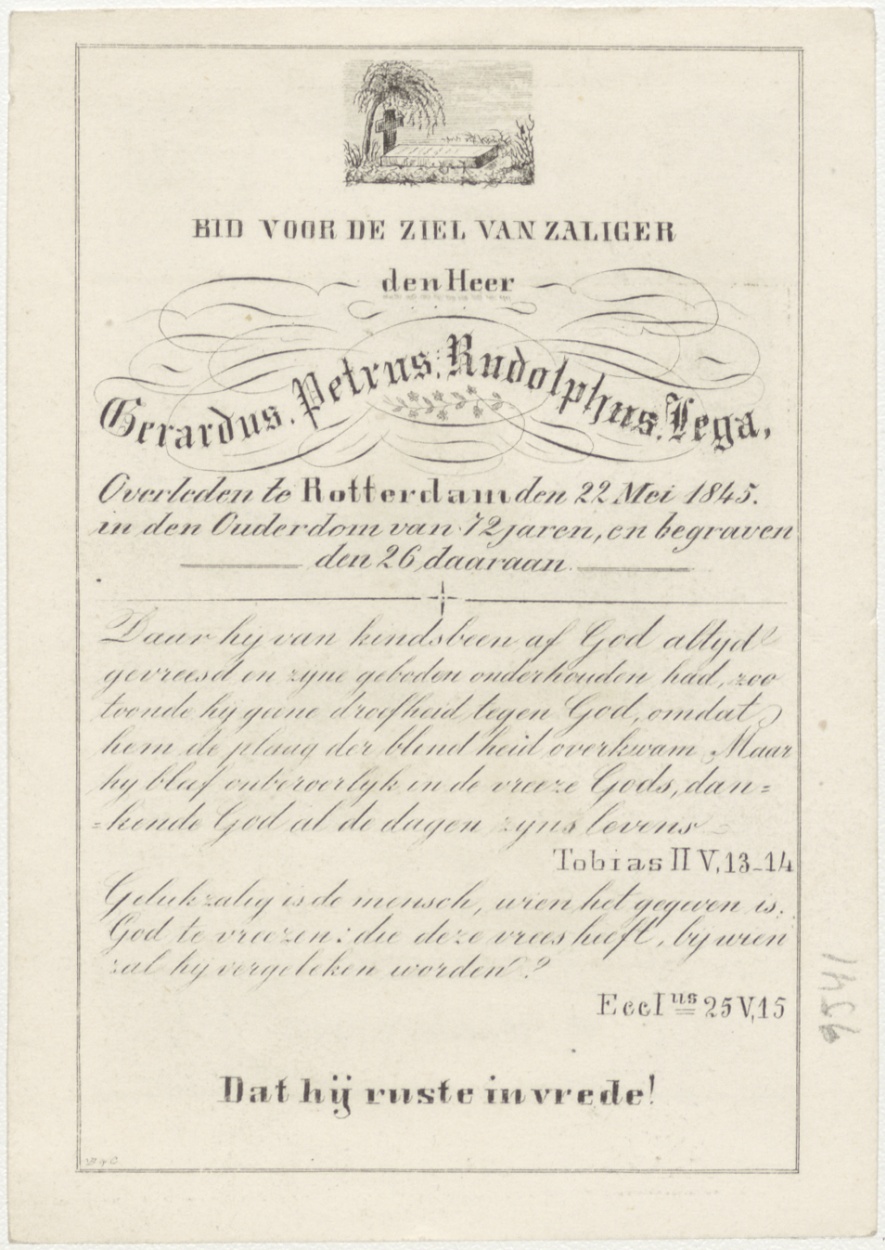 BID VOOR DE ZIEL VAN ZALIGER
den Heer
Gerardus. Petrus. Rudolphus. Lega,
Overleden te Rotterdam den 22 Mei 1845.
in den Ouderdom van 72 jaren, en begraven
den 26 daaraan.
Daar hij van kindsbeen af God altyd
gevreesd en zyne geboden onderhouden had, zoo
toonde hij geene droefheid tegen God, omdat
hem de plaag der blindheid overkwam Maar
hy bleef onberoerlyk in de vreeze Gods, dan=
=kende God al de dagen zyns levens
Tobias II V, 13-14
Gelukzalig is de mensch, wien het gegeven is,
God te vreezen: die deze vrees heeft, by wien
zal hij vergeleken worden?
Eccl us 25 V, 15
Dat hij ruste in vrede!
9541